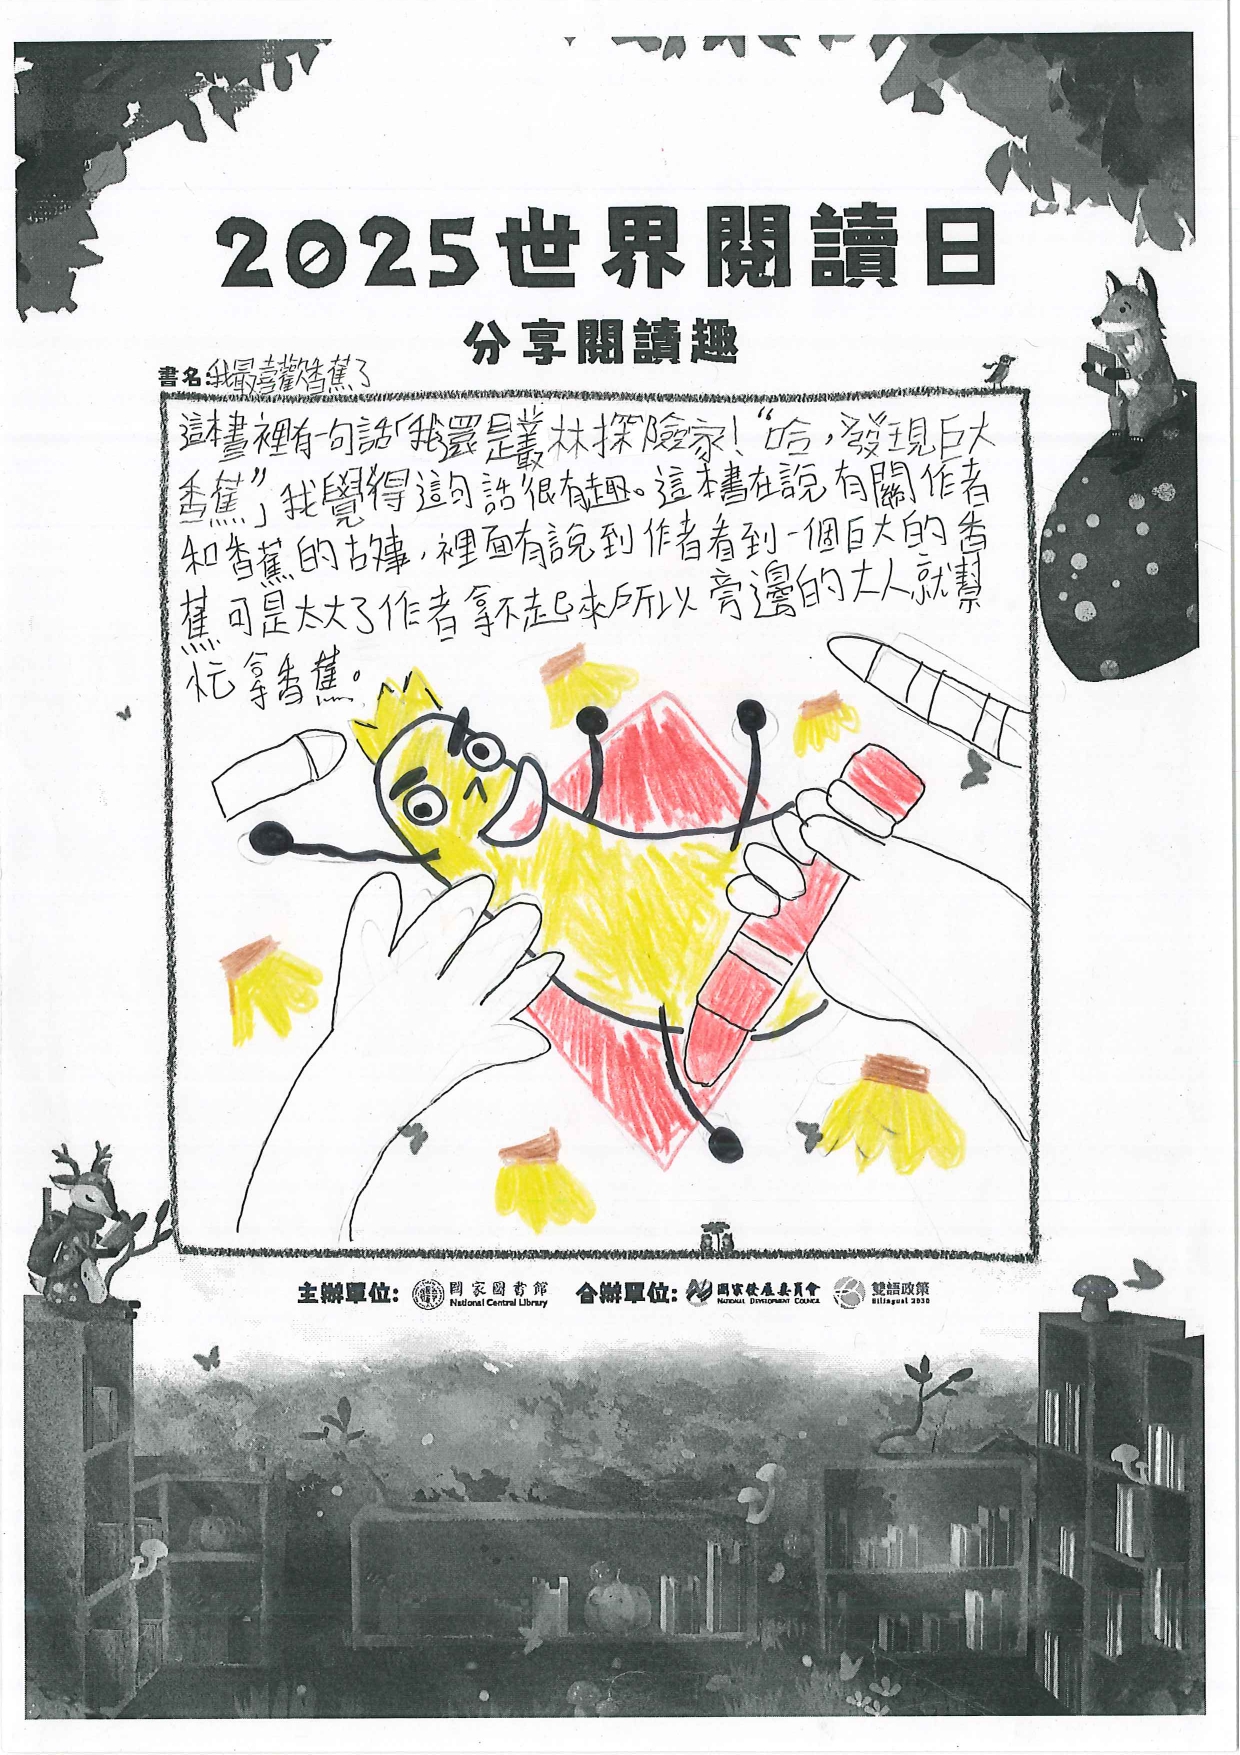 2025世界閱讀日
分享閱讀趣
書名:我最喜歡香蕉了
這本書裡有一句話「我還是叢林探險家!“哈,發現巨大
香蕉”」我覺得這句話很有趣。這本書在說有關作者
和香蕉的古事,裡面有說到作者看到一個巨大的香
蕉可是太大了作者拿不起來所以旁邊的大人就幫
忙拿香蕉。
主辦單位: 國家圖書館 合辦單位: 國家發展委員會 雙語政策
National Central Library NATIONAL DEVELOPMENT COUNCIL Bilingual 2030